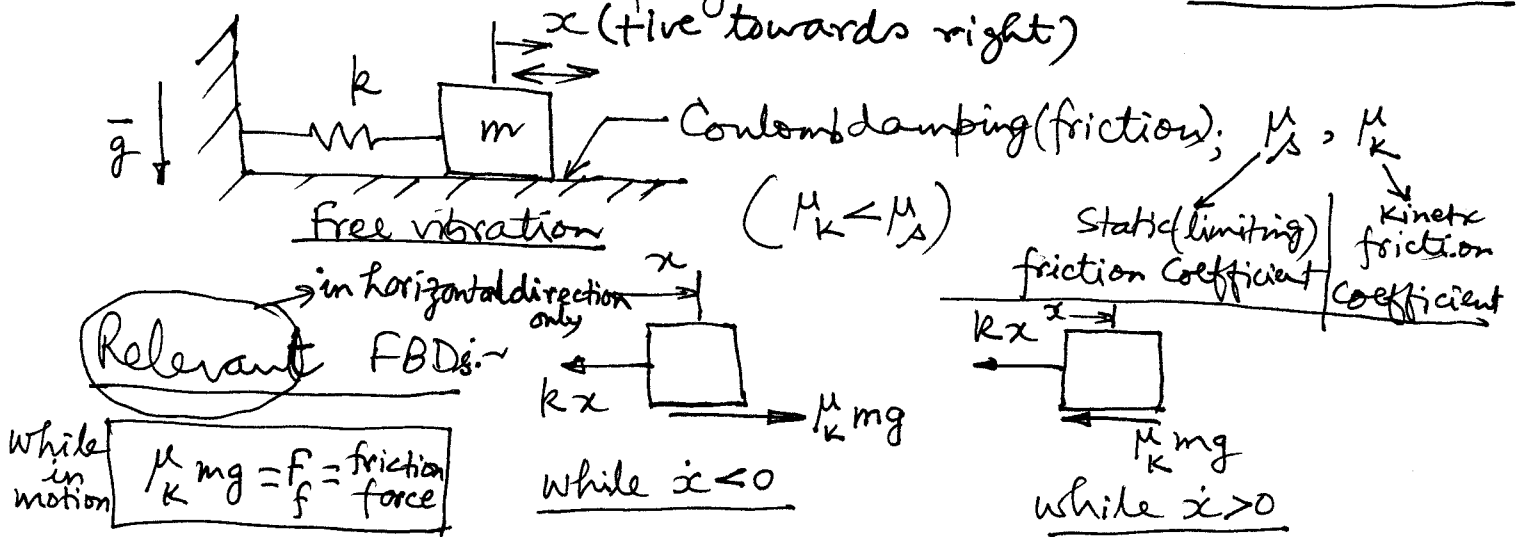 x (+ive towards right)
k
m
g
Coulomb damping (friction); μs, μk
(μk < μs)
static (limiting) friction coefficient
kinetic friction coefficient
Free vibration
in horizontal direction only
Relevant FBDs:~
x
kx
μk mg
while ẋ<0
kx
x
μk mg
while ẋ>0
while in motion
μk mg = Ff = friction force